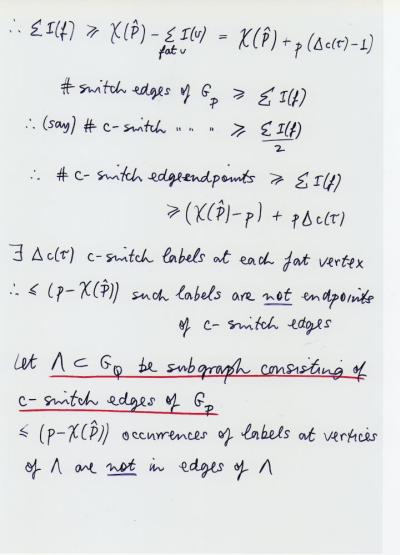 ∴ ΣI(f) ⩾ χ(P̂) − Σ I(v) = χ(P̂) + p(Δc(τ)−1)
fat v
# switch edges of G_p ⩾ ΣI(f)
∴ (say) # c-switch " " " ⩾ ΣI(f)/2
∴ # c-switch edge endpoints ⩾ ΣI(f)
⩾ (χ(P̂)−p) + pΔc(τ)
∃ Δc(τ) c-switch labels at each fat vertex
∴ ⩽ (p−χ(P̂)) such labels are not endpoints
of c-switch edges
Let Λ ⊂ G_Q be subgraph consisting of
c-switch edges of G_p
⩽ (p−χ(P̂)) occurrences of labels at vertices
of Λ are not in edges of Λ